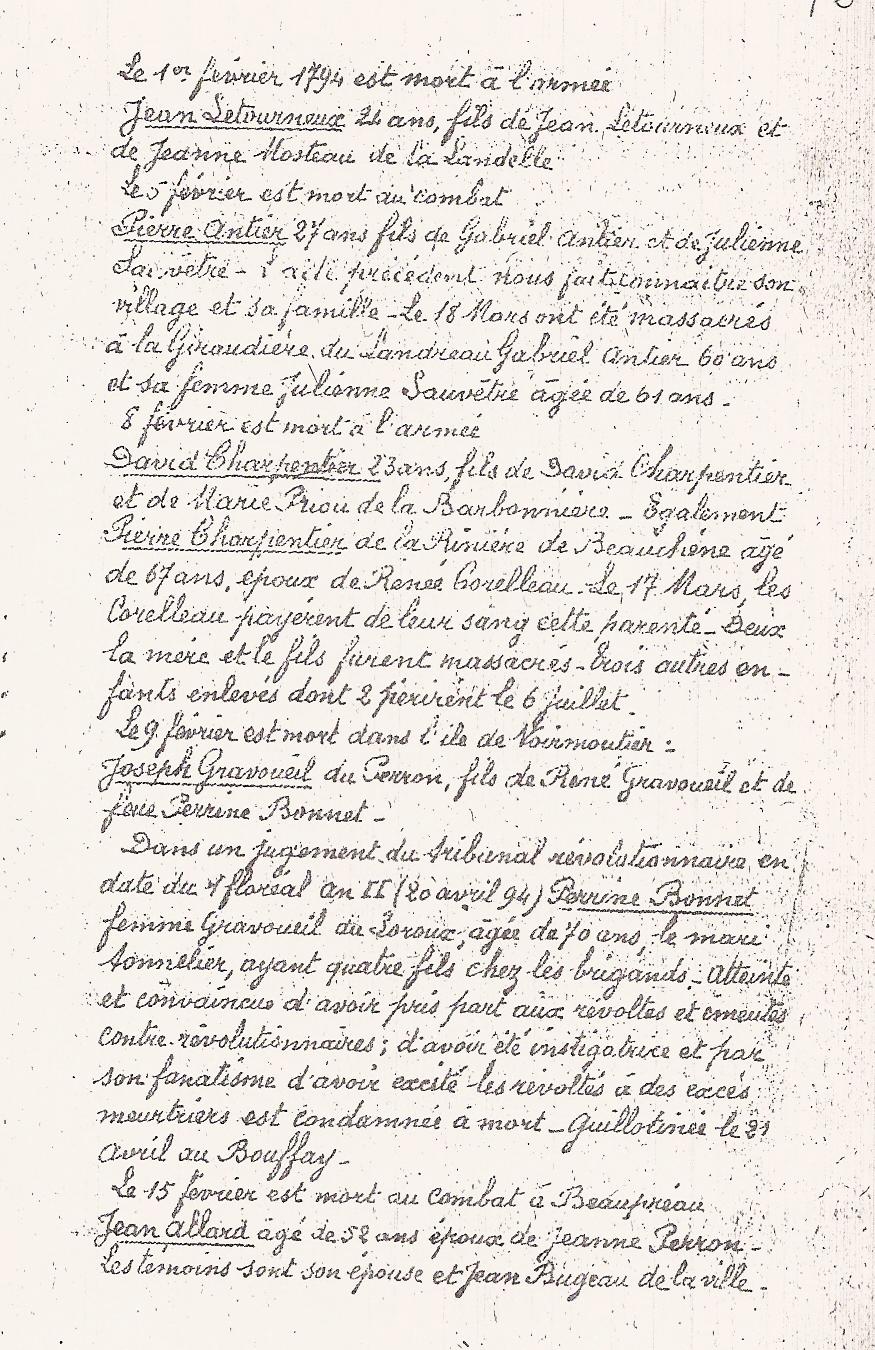 Le 1er février 1794 est mort à l'armée
Jean Letourneux 21 ans, fils de Jean Letourneux et
de Jeanne Mosteau de la Landelle
Le 5 février est mort au combat
Pierre Antier 27 ans fils de Gabriel Antier et de Julienne
Sauvêtre - L'acte précédent nous fait connaitre son
village et sa famille - Le 18 Mars ont été massacrés
à la Giraudière du Landreau Gabriel Antier 60 ans
et sa femme Julienne Sauvêtre âgée de 61 ans -
8 février est mort à l'armée
David Charpentier 23 ans, fils de David Charpentier
et de Marie Priou de la Barbonnière - Egalement
Pierre Charpentier de la Rinière de Beauchêne âgé
de 67 ans, époux de Renée Corelleau - Le 17 Mars, les
Corelleau payèrent de leur sang cette parenté - Deux
la mère et le fils furent massacrés - Trois autres en-
fants enlevés dont 2 périrent le 6 Juillet -
Le 9 février est mort dans l'ile de Noirmoutier :
Joseph Gravoueil du Perron, fils de René Gravoueil et de
feue Perrine Bonnet -
Dans un jugement du tribunal révolutionnaire en
date du 1 floréal an II (20 avril 94) Perrine Bonnet
femme Gravoueil du Loroux, âgée de 70 ans, le mari
tonnelier, ayant quatre fils chez les brigands - Atteinte
et convaincue d'avoir pris part aux révoltes et émeutes
contre-révolutionnaires ; d'avoir été instigatrice et par
son fanatisme d'avoir excité les révoltés à des excés
meurtriers est condamnée à mort - Guillotinée le 21
Avril au Bouffay -
Le 15 février est mort au combat à Beaupréau
Jean Allard âgé de 52 ans époux de Jeanne Perron -
Les témoins sont son épouse et Jean Bugeau de la ville -